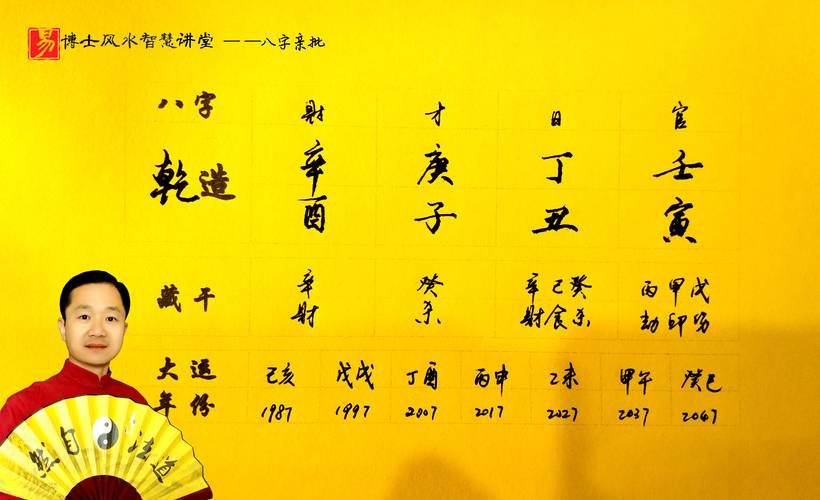 易 博士风水智慧讲堂 ——八字亲批
八字 财 才 日 官
乾造 辛 庚 丁 壬
酉 子 丑 寅
藏干 辛 癸 辛己癸 丙甲戊
财 杀 财食杀 劫印伤
大运 己亥 戊戌 丁酉 丙申 乙未 甲午 癸巳
年份 1987 1997 2007 2017 2027 2037 2047
然自法道